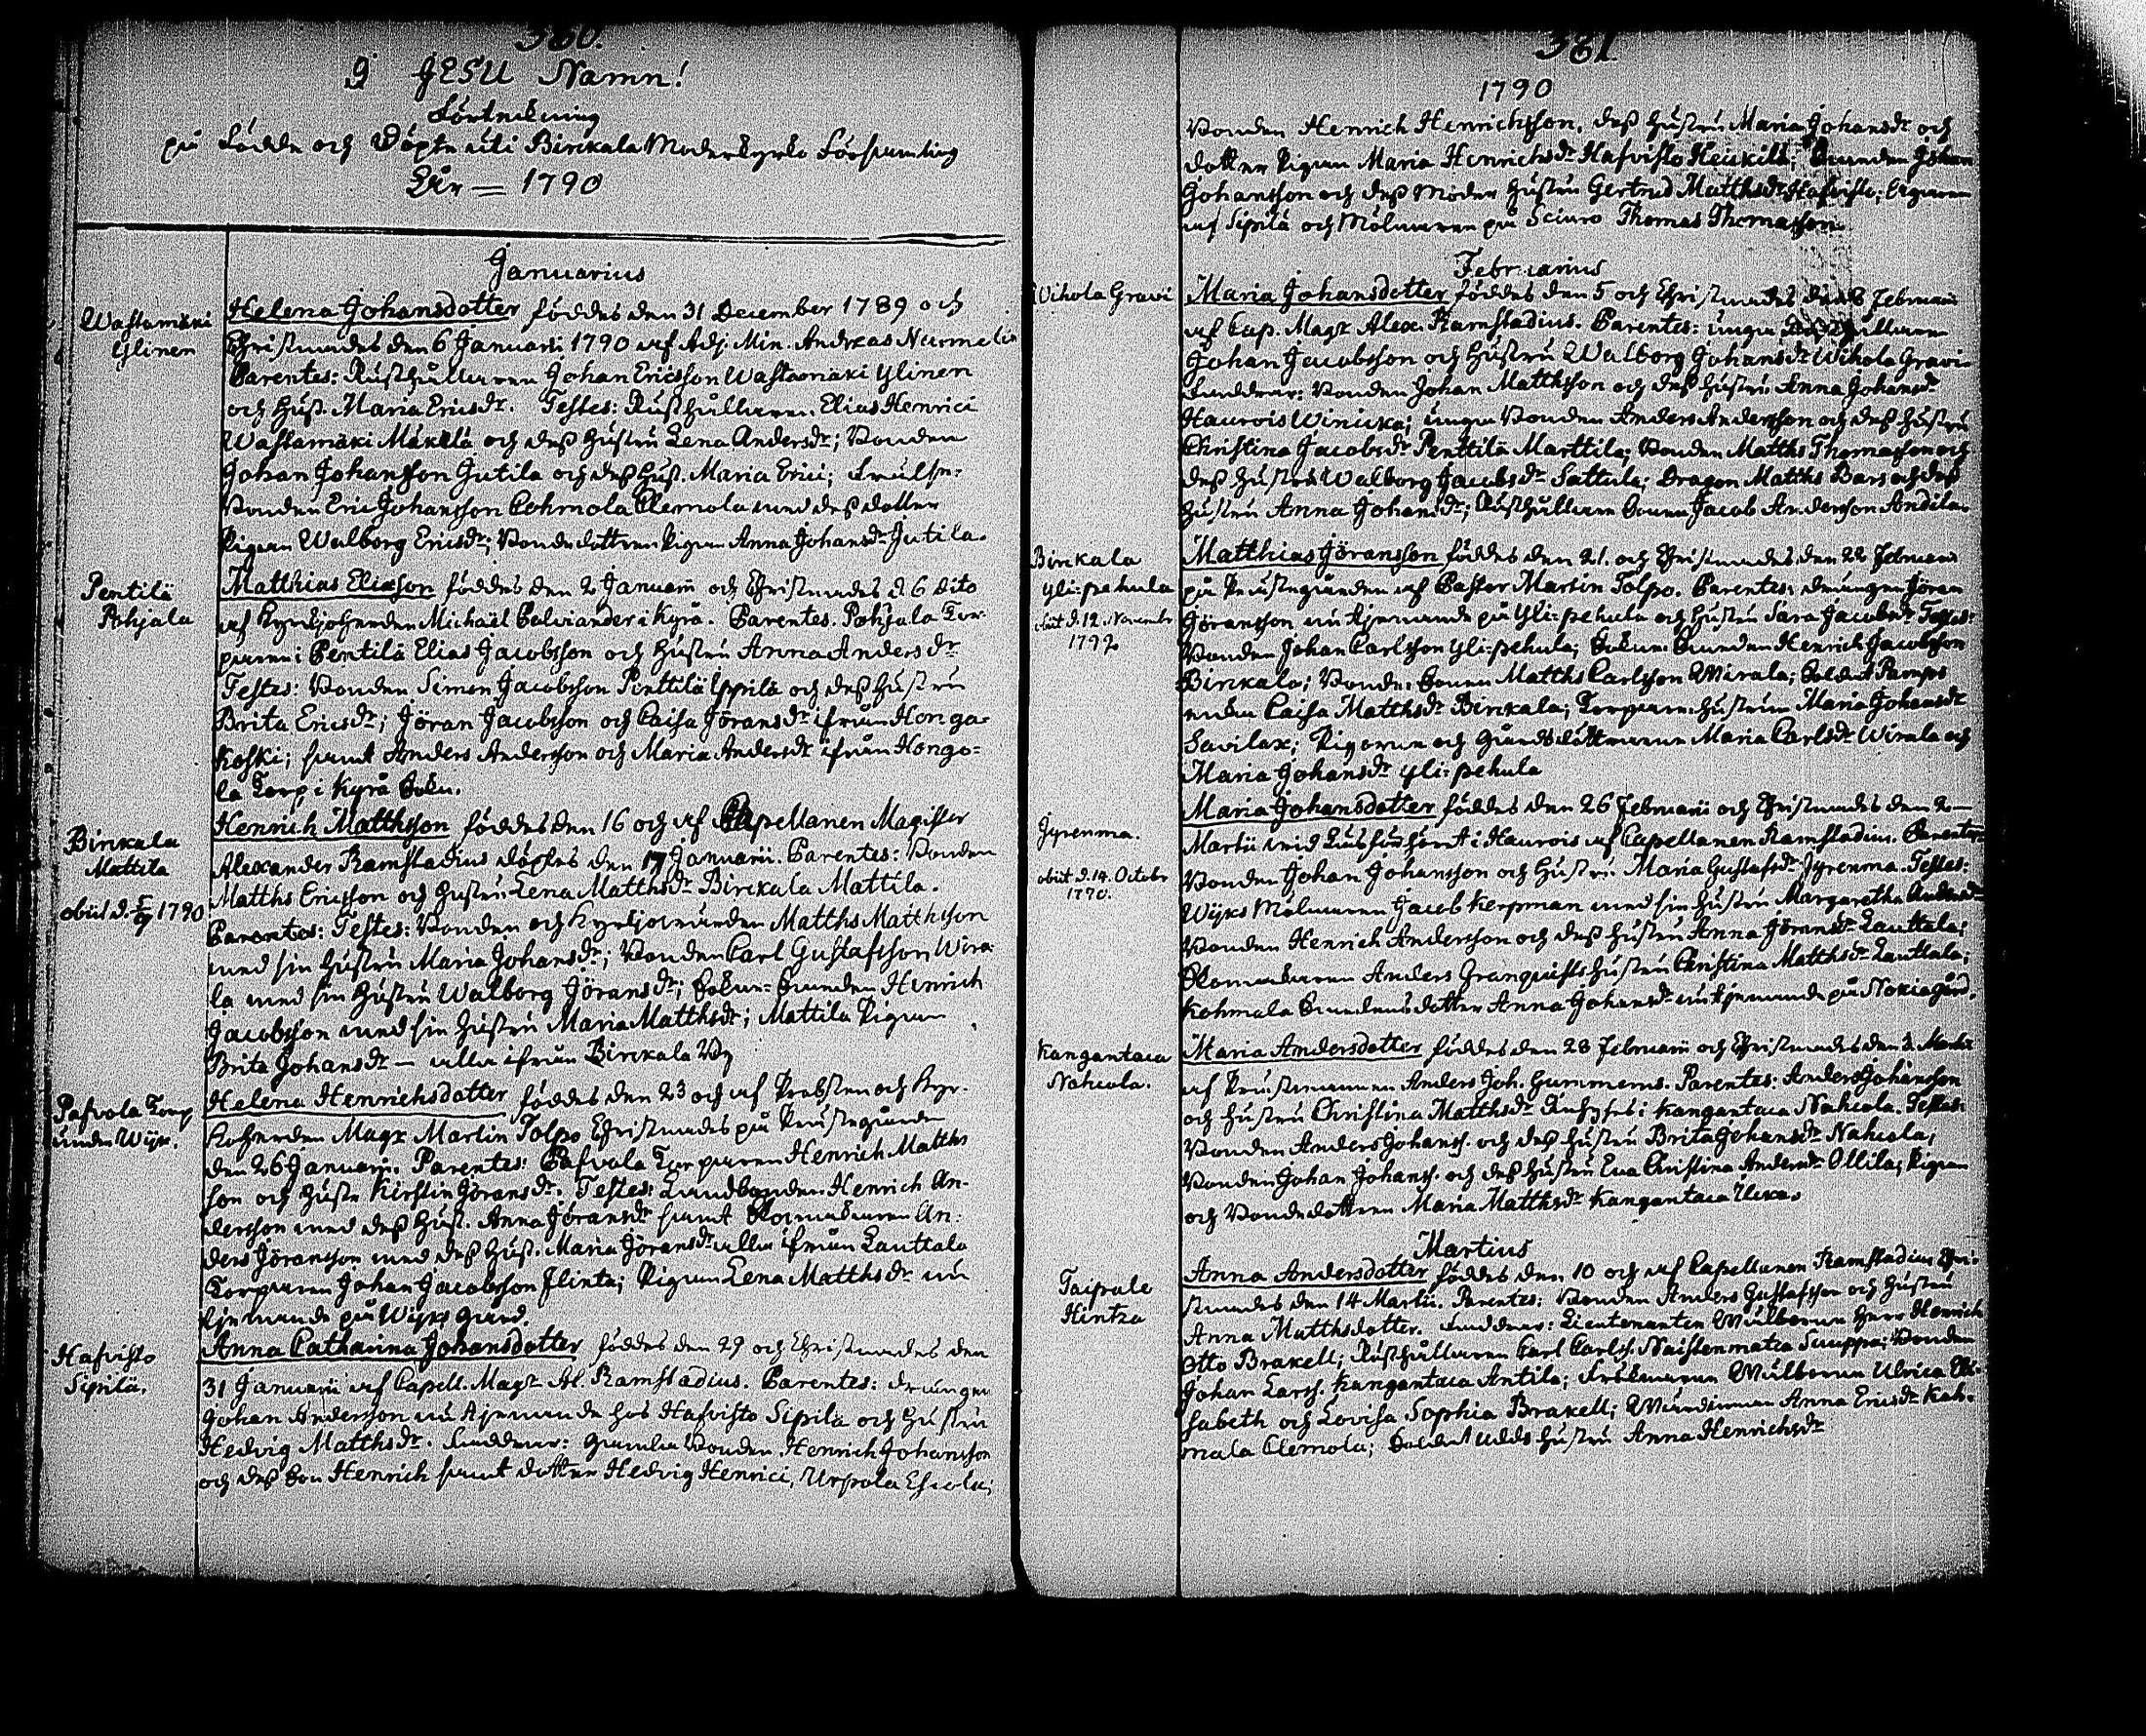 380.
I JESU Namn!
Förtekning
på Födde och Döpte uti Birckala Moderkyrko Församling
Åhr = 1790
Januarius
Wastamäki
Ylinen
Helena Johansdotter föddes den 31 December 1789 och
Christnades den 6 Januarii 1790 af Adj. Min. Andreas Nurmelin
Parentes: Rusthållaren Johan Ericsson Wastamäki Ylinen
och Hust. Maria Ericsdr. Testes: Rusthållaren Elias Henrici
Wastamäki Mäkelä och dess Hustru Lena Andersdr; Bonden
Johan Johansson Jutila och dess Hust. Maria Erici; Frälse-
Bonden Eric Johansson Cohmola Clemola med dess dotter
Pigan Walborg Ericsdr; Bondedottren Pigan Anna Johansdr Jutila.
Pentilä
Pohjala
Matthias Eliasson föddes den 2 Januarii och Christnades d. 6 dito
af Kyrckjoherden Michaël Polviander i Kyrå. Parentes. Pohjala Tor-
paren i Pentilä Elias Jacobsson och Hustru Anna Andersdr
Testes: Bonden Simon Jacobsson Penttilä Yppilä och dess Hustru
Brita Ericsdr; Jöran Jacobsson och Caisa Jöransdr ifrån Honga-
koski; samt Anders Andersson och Maria Andersdr ifrån Hongo-
la Torp i Kyrå Sokn.
Birckala
Mattila
obiit d. 5/9 1790
Henrich Matthsson föddes den 16 och af Capellanen Magister
Alexander Ramstadius döptes den 17 Januarii. Parentes: Bonden
Matths Ericsson och Hustru Lena Matthsdr Birckala Mattila.
Parentes: Testes: Bonden och Kyrkjovärden Matths Matthsson
med sin Hustru Maria Johansdr; Bonden Carl Gustafsson Wira-
la med sin Hustru Walborg Jöransdr; Sokne-Smeden Henrich
Jacobsson med sin Hustru Maria Matthsdr; Mattila Pigan
Brita Johansdr — alla ifrån Birckala By
Pafvola Torp
under Wijk.
Helena Henrichsdotter föddes den 23 och af Probsten och Kyr-
koherden Magr Martin Tolpo Christnades på Prästegården
den 26 Januarii. Parentes: Pafvola Torparen Henrich Matths
son och Hustr. Kirstin Jöransdr. Testes: Landbonden Henrich An-
dersson med dess Hust. Anna Jöransdr samt Klockaren An-
ders Jöransson med dess Hust. Maria Jöransdr alla ifrån Lauttala
Torparen Johan Jacobsson Flinta; Pigan Lena Matthsdr nu
tjenande på Wijks gård.
Hafvisto
Sipilä.
Anna Catharina Johansdotter föddes den 29 och Christnades den
31 Januarii af Capell. Magr Al. Ramstadius. Parentes: drängen
Johan Andersson nu tjenande hos Hafvisto Sipilä och Hustru
Hedvig Matthsdr. Faddrar: gamla Bonden Henrich Johansson
och dess Son Henrich samt dotter Hedvig Henrici, Urpola Eskola;
381.
1790
Bonden Henrich Henrichsson, dess Hustru Maria Johansdr och
dotter Pigan Maria Henrichsdr Hafvisto Heickilä; Bonden Johan
Johansson och dess Moder Hustru Gertrud Matthsdr Hafvisto;
af Sipilä och Mölnaren på Sciuro Thomas Thomasson.
Februarius
Wihola Gravi
Maria Johansdotter föddes den 5 och Christnades Februarii
af Cap. Magr Alex. Ramstadius. Parentes: unga Rusthållaren
Johan Jacobsson och Hustru Walborg Johansdr Wihola Gravi
Faddrar: Bonden Johan Matthsson och dess Hustru Anna Johansdr
Haurois Winicka; unga Bonden Anders Andersson och dess Hustru
Christina Jacobsdr Penttilä Marttila; Bonden Matths Thomasson och
dess Hustru Walborg Jacobsdr Sattula; Dragon Matths Bars och dess
Hustru Anna Johansdr; Rusthållare Sonen Jacob Andersson Andila.
Birckala
Yli-pehula
obiit d. 12. Novembr
1792
Matthias Jöransson föddes den 21. och Christnades den 22 Februarii
på Prästegården af Pastor Martin Tolpo. Parentes: drängen Jöran
Jöransson nu tjenande på Yli-pehula och Hustru Sara Jacobsdr Testes:
Bonden Johan Carlsson Yli-pehula; Sokne-Smeden Henrich Jacobsson
Birckala; Bonde-Sonen Matths Carlsson Wirala; Soldat Pamps
enka Caisa Matthsdr Birckala; Torpare-Hustrun Maria Johansdr
Savilax; Pigorna och Gårdsdöttrarna Maria Carlsdr Wirala och
Maria Johansdr Yli-pehula
Jyrenma.
obiit d. 14. Octobr
1790.
Maria Johansdotter föddes den 26 Februarii och Christnades den 2—
Martii vid Läseförhöret i Haurois af Capellanen Ramstadius. Parentes:
Bonden Johan Johansson och Hustru Maria Gustafsdr Jyrenma. Testes:
Wijks Mölnaren Jacob Kerpman med sin Hustru Margaretha Andersdr
Bonden Henrich Andersson och dess Hustru Anna Jöransdr Lauttala;
Klockaren Anders Granquists Hustru Christina Matthsdr Lauttala;
Kohmala Smedens dotter Anna Johansdr nu tjenande på Nokia gård.
Kangantaca
Nahcola.
Maria Andersdotter föddes den 28 Februarii och Christnades den 3. Martii
af Prästmannen Anders Joh. Gummerus. Parentes: Anders Johansson
och Hustru Christina Matthsdr Inhyses i Kangantaca Nahcola. Testes:
Bonden Anders Johanss. och dess Hustru Brita Johansdr Nahcola;
Bonden Johan Johanss. och dess Hustru Eva Christina Andersdr Ollila; Pigan
och Bondedottren Maria Matthsdr Kangantaca
Martius
Taipale
Hintza
Anna Andersdotter föddes den 10 och af Capellanen Ramstadius Chri-
stnades den 14 Martii. Parentes: Bonden Anders Gustafsson och Hustru
Anna Matthsdotter. Faddrar: Lieutenanten Wälborne Herr Henrich
Otto Brakell; Rusthållaren Carl Carlss. Naistenmatca Sauppa; Bonden
Johan Larss. Kangantaca Antila; Fröknarna Wälborna Ulrica Eli-
sabeth och Lovisa Sophia Brakell; Wärdinnan Anna Ericsdr Koh-
mala Clemola; Soldat Hustru Anna Henrichsdr